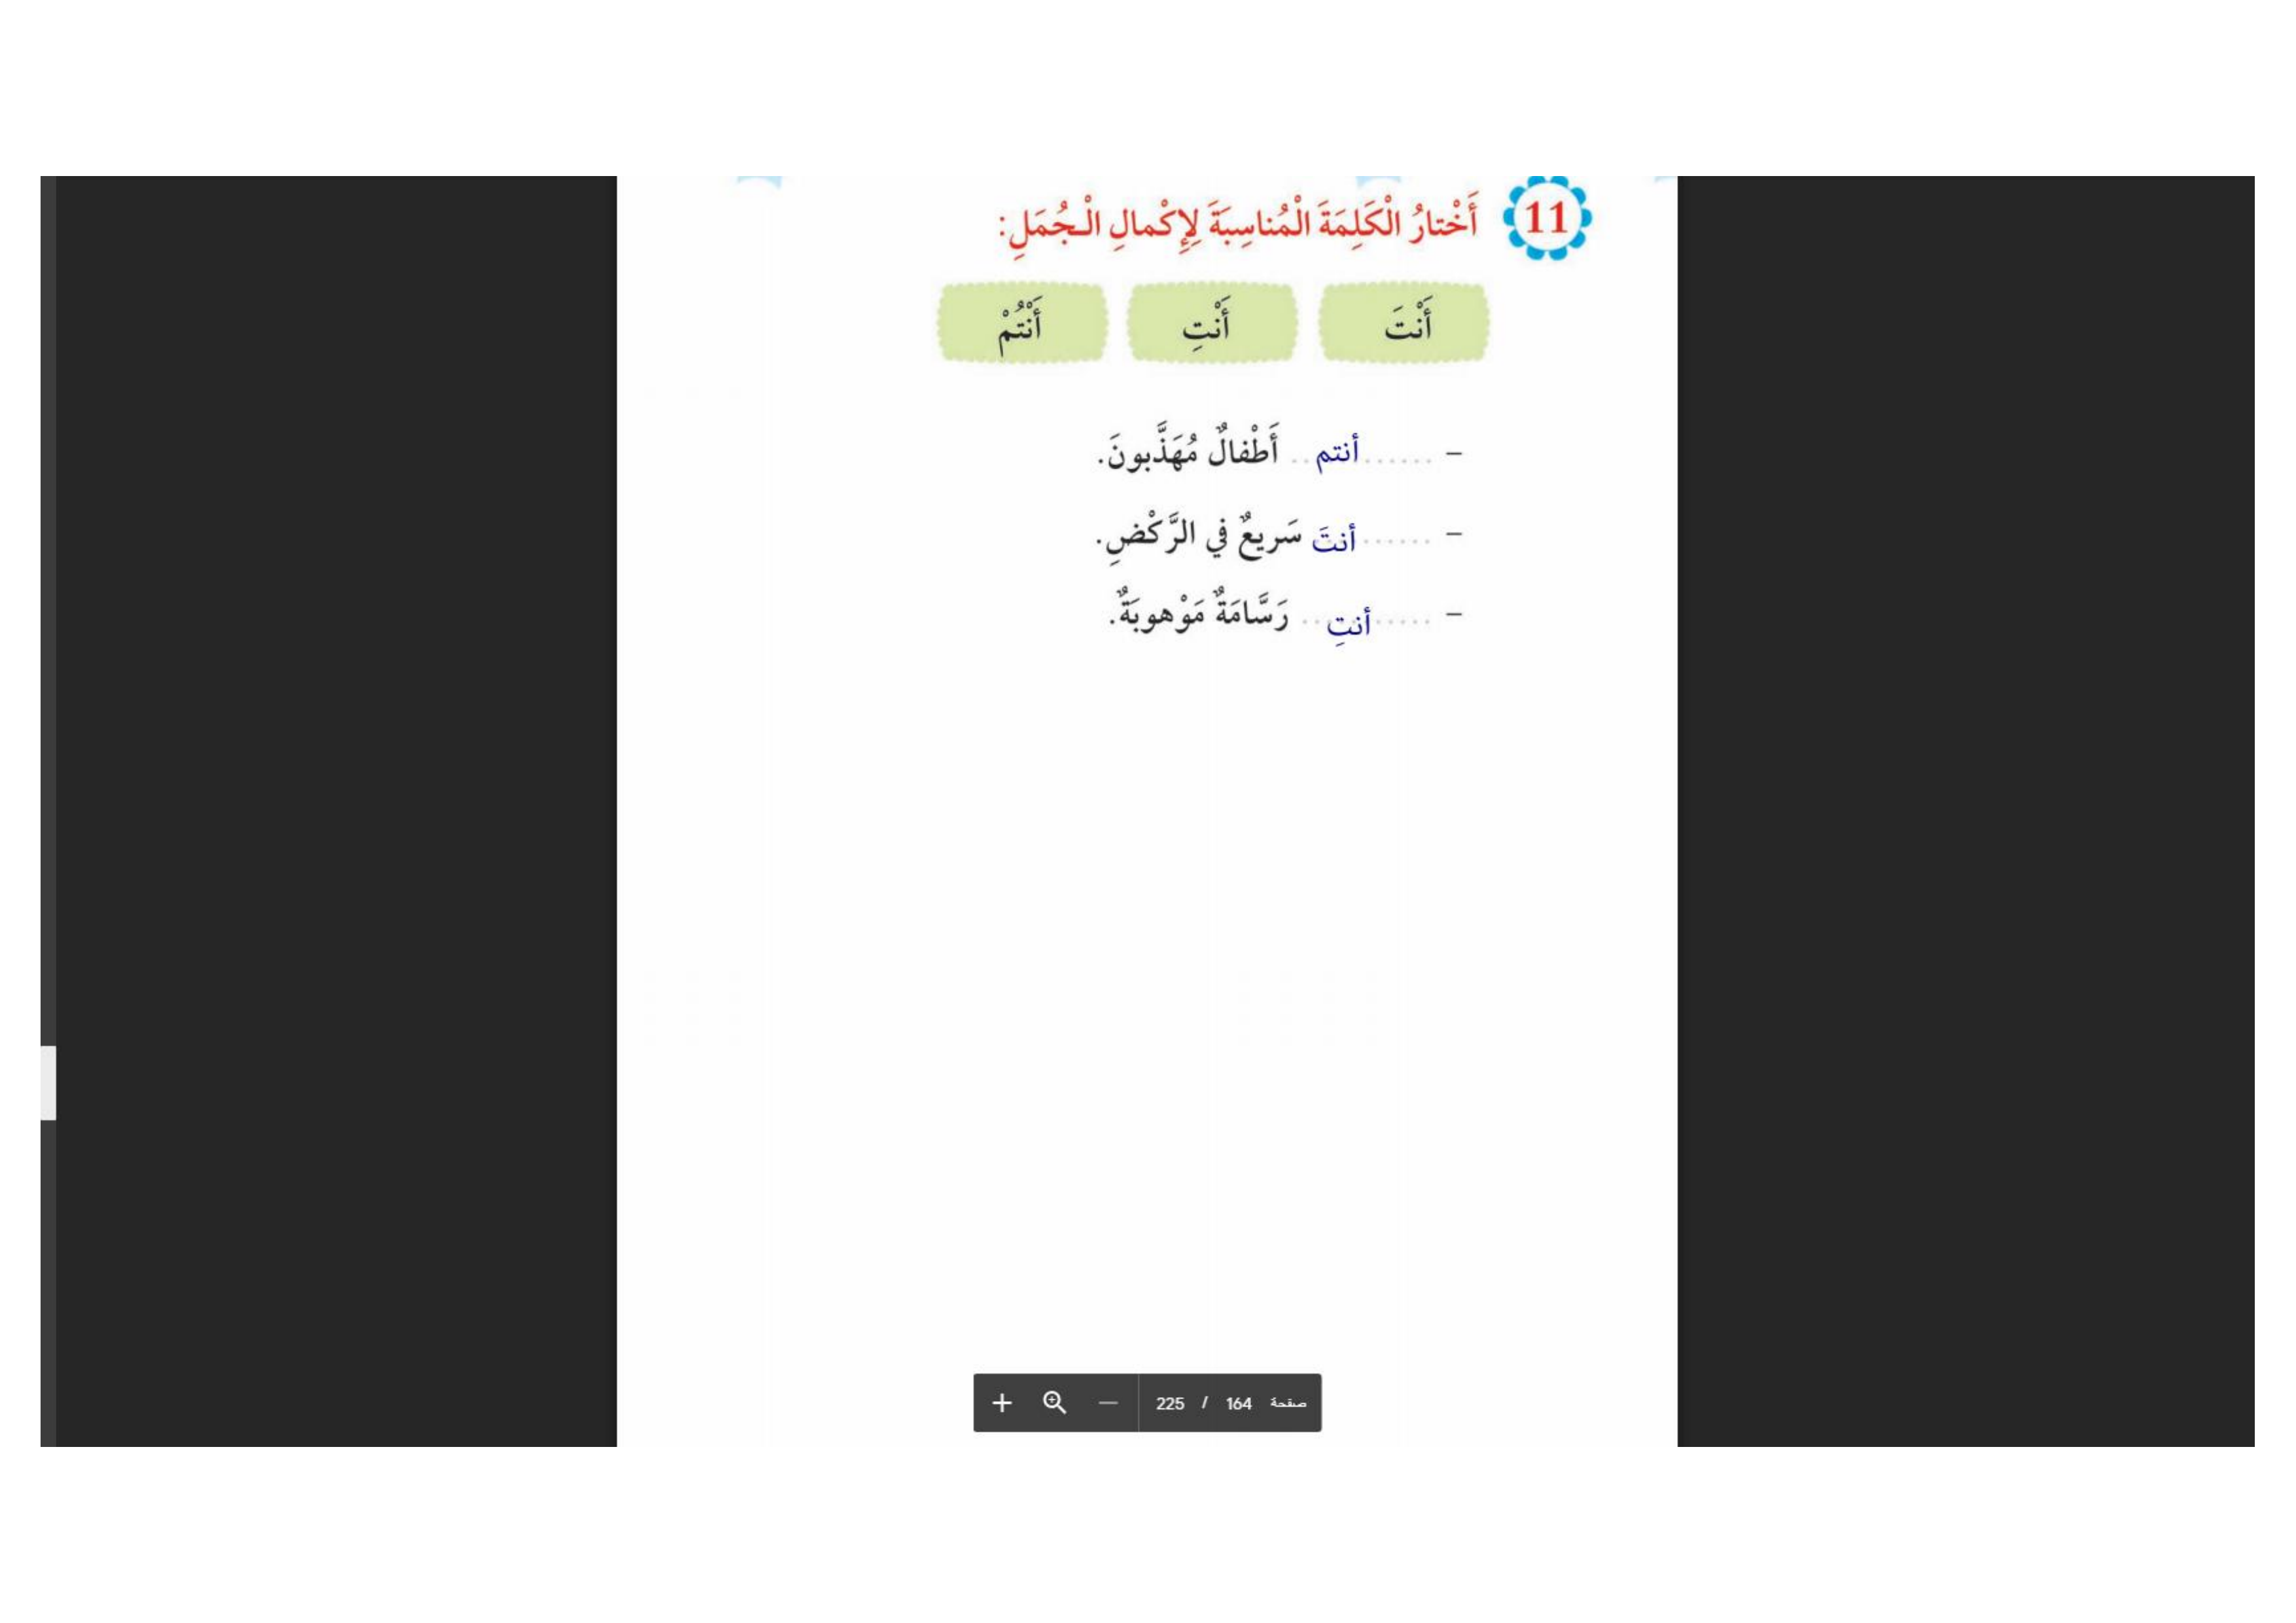 11 أَخْتارُ الْكَلِمَةَ الْمُناسِبَةَ لِإِكْمالِ الْجُمَلِ:
أَنْتَ أَنْتِ أَنْتُمْ
– ...... أنتم .. أَطْفالٌ مُهَذَّبونَ.
– ...... أنتَ سَريعٌ في الرَّكْضِ.
– ..... أنتِ ... رَسَّامَةٌ مَوْهوبَةٌ.
صفحة 164 / 225